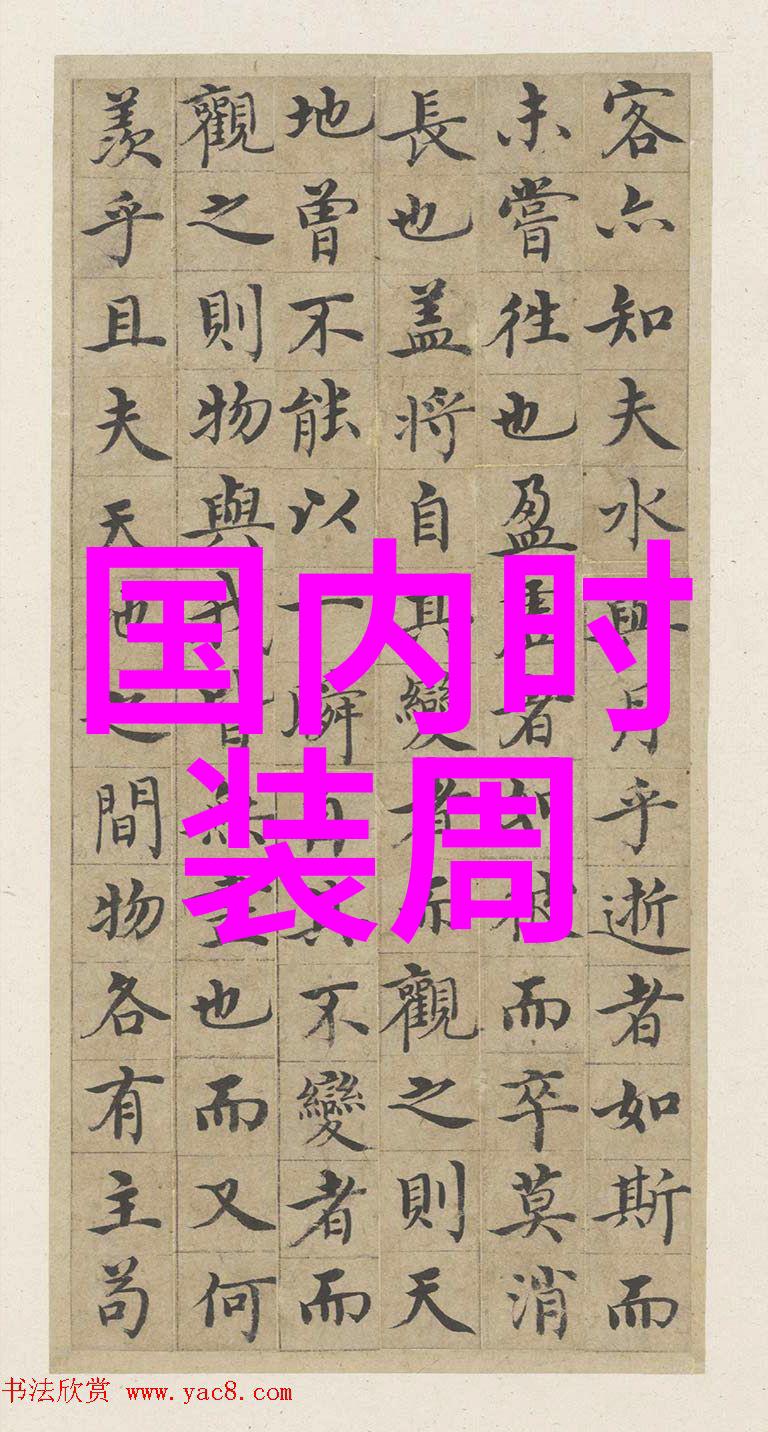 客亦知夫水與月乎逝者如斯而
未嘗往也盈虛者如彼而卒莫消
長也盖将自其變者而觀之則天
地曾不能以一瞬自其不變者而
觀之則物與我皆無盡也而又何
羨乎且夫天地之間物各有主苟
国内时
装周
书法欣赏 www.yac8.com